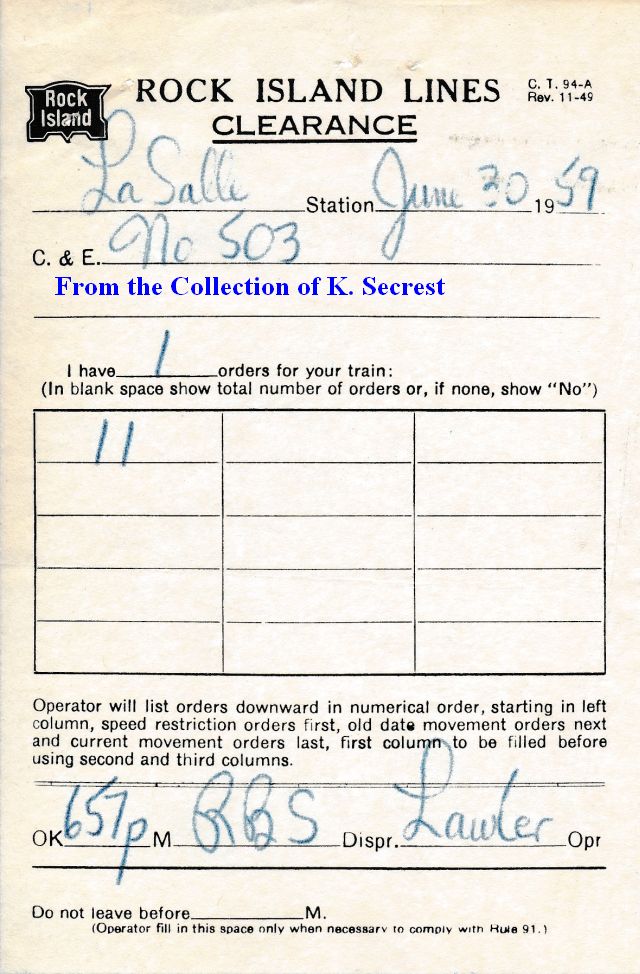 Rock Island
ROCK ISLAND LINES
C. T. 94-A
Rev. 11-49
CLEARANCE
LaSalle Station June 30 1959
C. & E. No 503
From the Collection of K. Secrest
I have 1 orders for your train:
(In blank space show total number of orders or, if none, show "No")
11
Operator will list orders downward in numerical order, starting in left
column, speed restriction orders first, old date movement orders next
and current movement orders last, first column to be filled before
using second and third columns.
OK 657p M RBS Dispr. Lawler Opr
Do not leave before M.
(Operator fill in this space only when necessary to comply with Rule 91.)